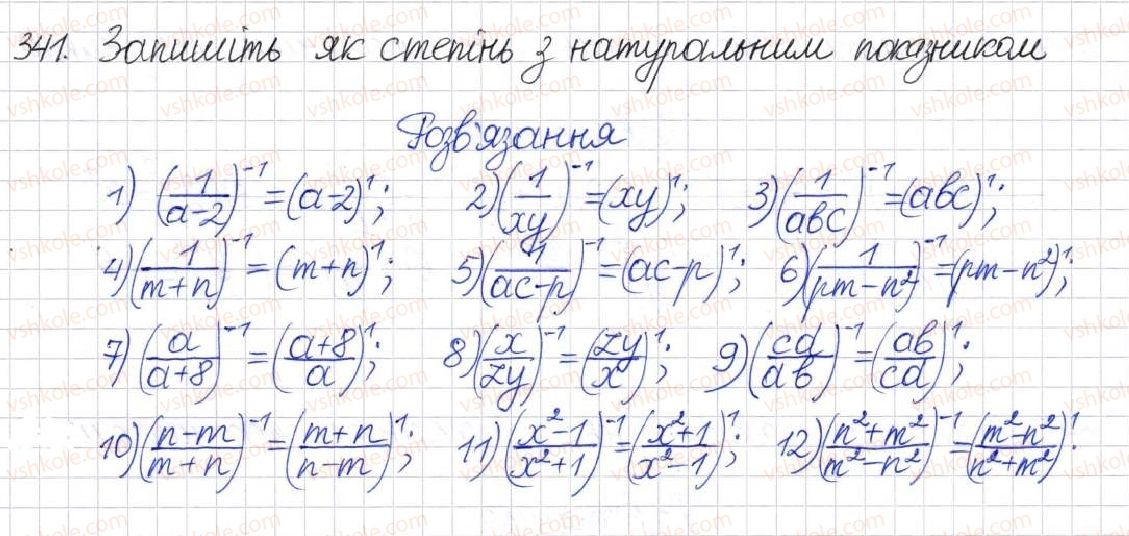 341. Запишіть як степінь з натуральним показником
Розв'язання
1) (1/(a-2))^-1 = (a-2)^1; 2) (1/(xy))^-1 = (xy)^1; 3) (1/(abc))^-1 = (abc)^1;
4) (1/(m+n))^-1 = (m+n)^1; 5) (1/(ac-p))^-1 = (ac-p)^1; 6) (1/(pm-n²))^-1 = (pm-n²)^1;
7) (a/(a+8))^-1 = ((a+8)/a)^1; 8) (x/(zy))^-1 = ((zy)/x)^1; 9) ((cd)/(ab))^-1 = ((ab)/(cd))^1;
10) ((n-m)/(m+n))^-1 = ((m+n)/(n-m))^1; 11) ((x²-1)/(x²+1))^-1 = ((x²+1)/(x²-1))^1; 12) ((n²+m²)/(m²-n²))^-1 = ((m²-n²)/(n²+m²))^1.
vshkole.com